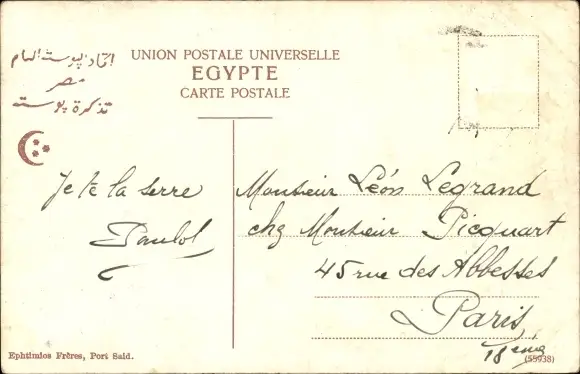 اتحاد البوستة العام
مصر
تذكرة بوسته
UNION POSTALE UNIVERSELLE
EGYPTE
CARTE POSTALE
Je te la serre
Paulot
Monsieur Léon Legrand
chez Monsieur Picquart
45 rue des Abbesses
Paris
18ème
Ephtimios Frères, Port Said.
(55938)